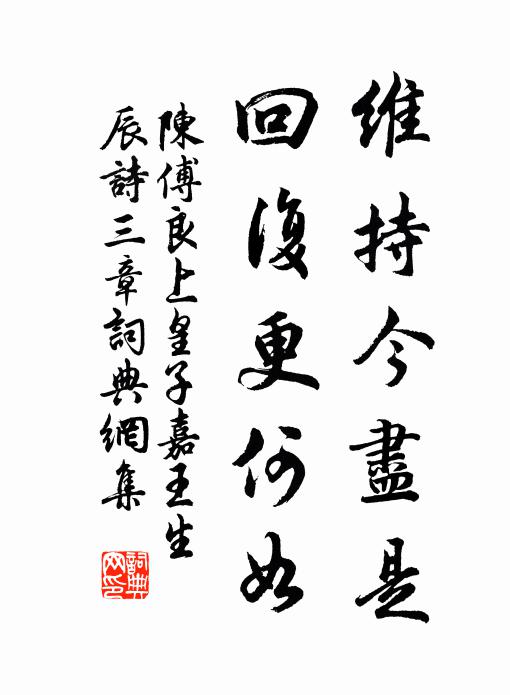 維持今盡是
回復更何如
陳傅良上皇子嘉王生
辰詩三章詞典網集
詞典
网印